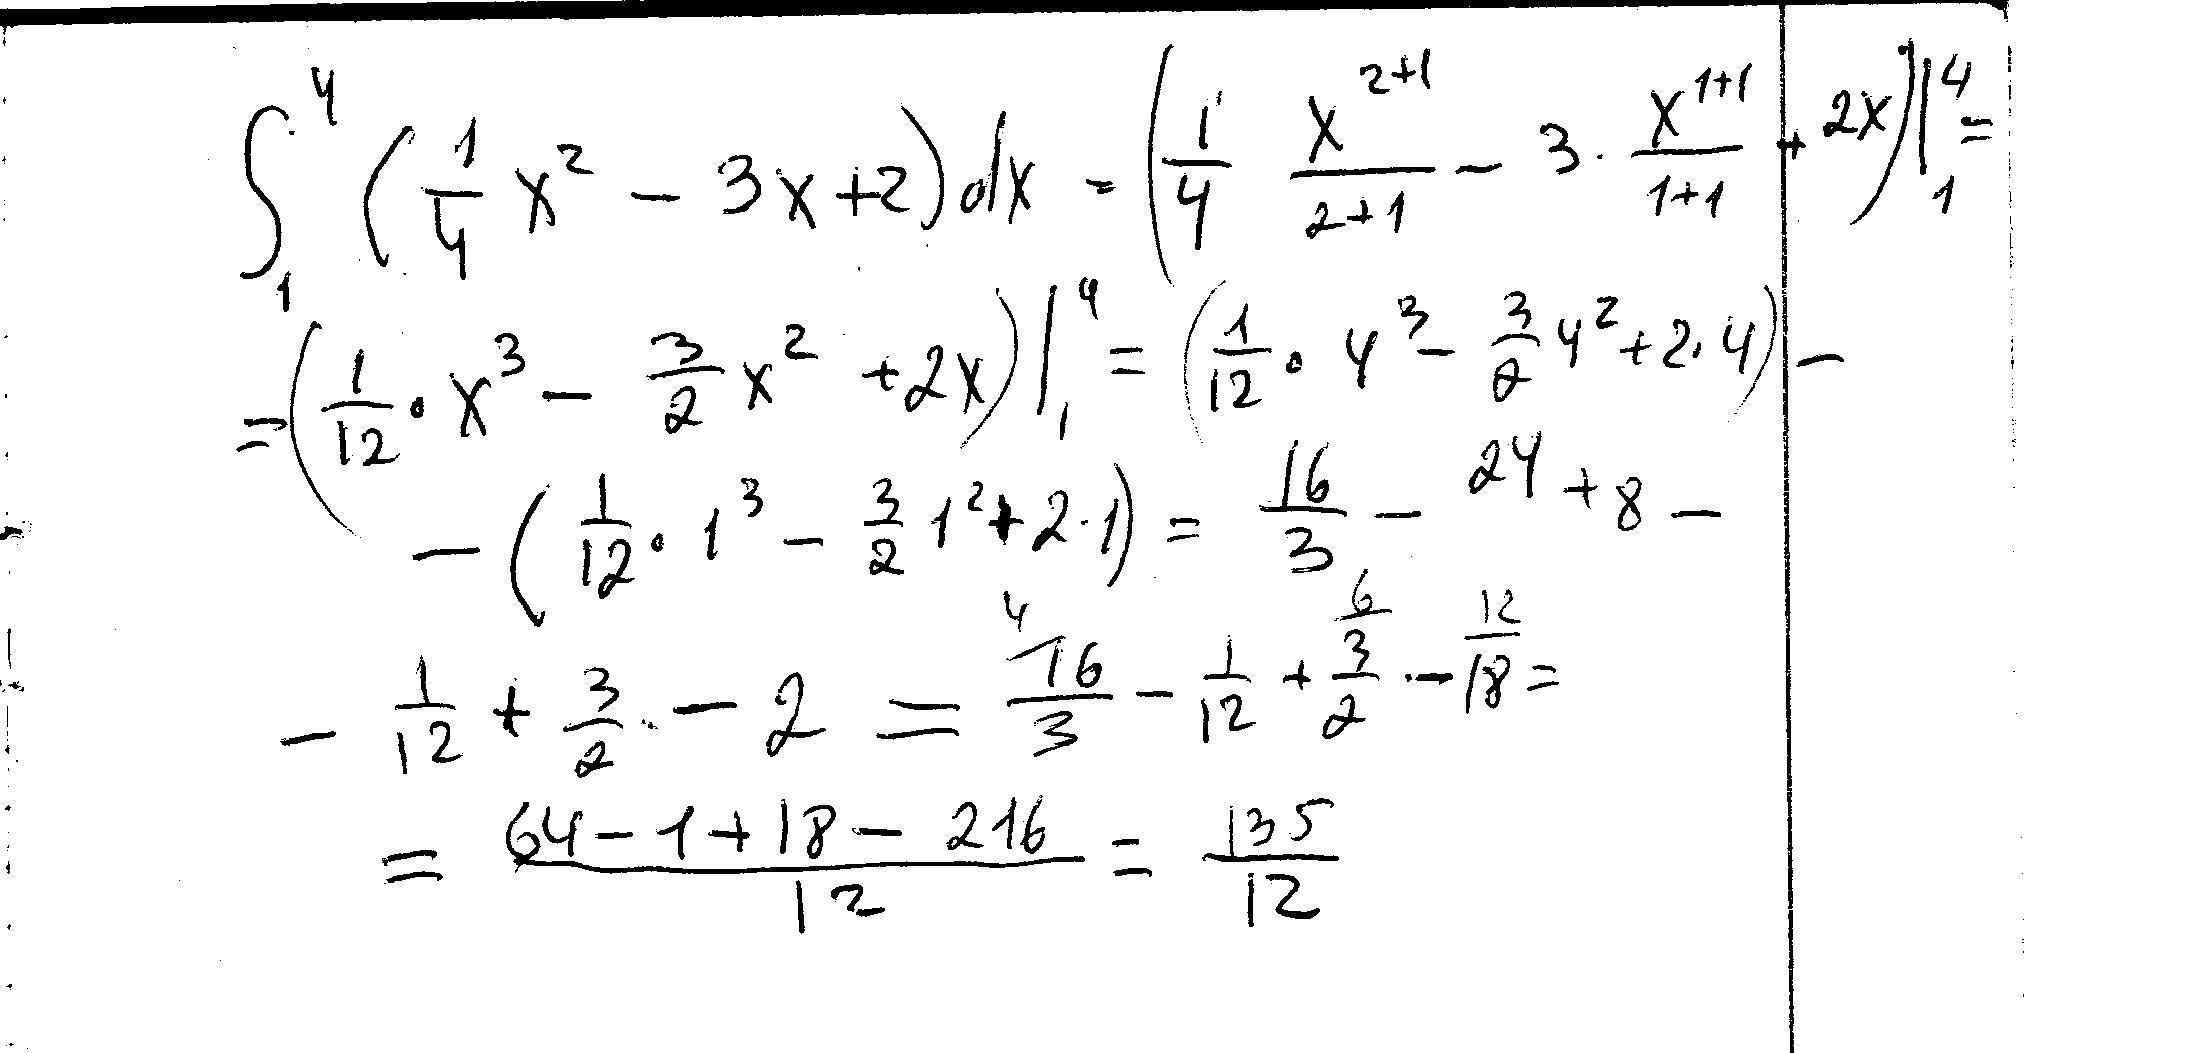 ∫₁⁴ (1/4 x² − 3x + 2) dx = (1/4 x²⁺¹/(2+1) − 3 · x¹⁺¹/(1+1) + 2x)|₁⁴ =
= (1/12 · x³ − 3/2 x² + 2x)|₁⁴ = (1/12 · 4³ − 3/2 4² + 2 · 4) −
− (1/12 · 1³ − 3/2 1² + 2 · 1) = 16/3 − 24 + 8 −
− 1/12 + 3/2 − 2 = ⁴⁄16/3 − 1/12 + ⁶⁄3/2 − ¹²⁄18 =
= (64 − 1 + 18 − 216)/12 = 135/12